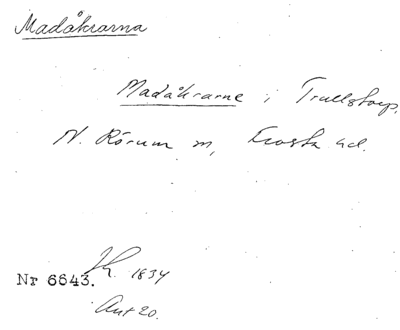 Madåkrarna
Madåkrarne i Trullstorp,
N. Rörum m, Frosta hd.
Nr 6643. 1834
Ant 20.